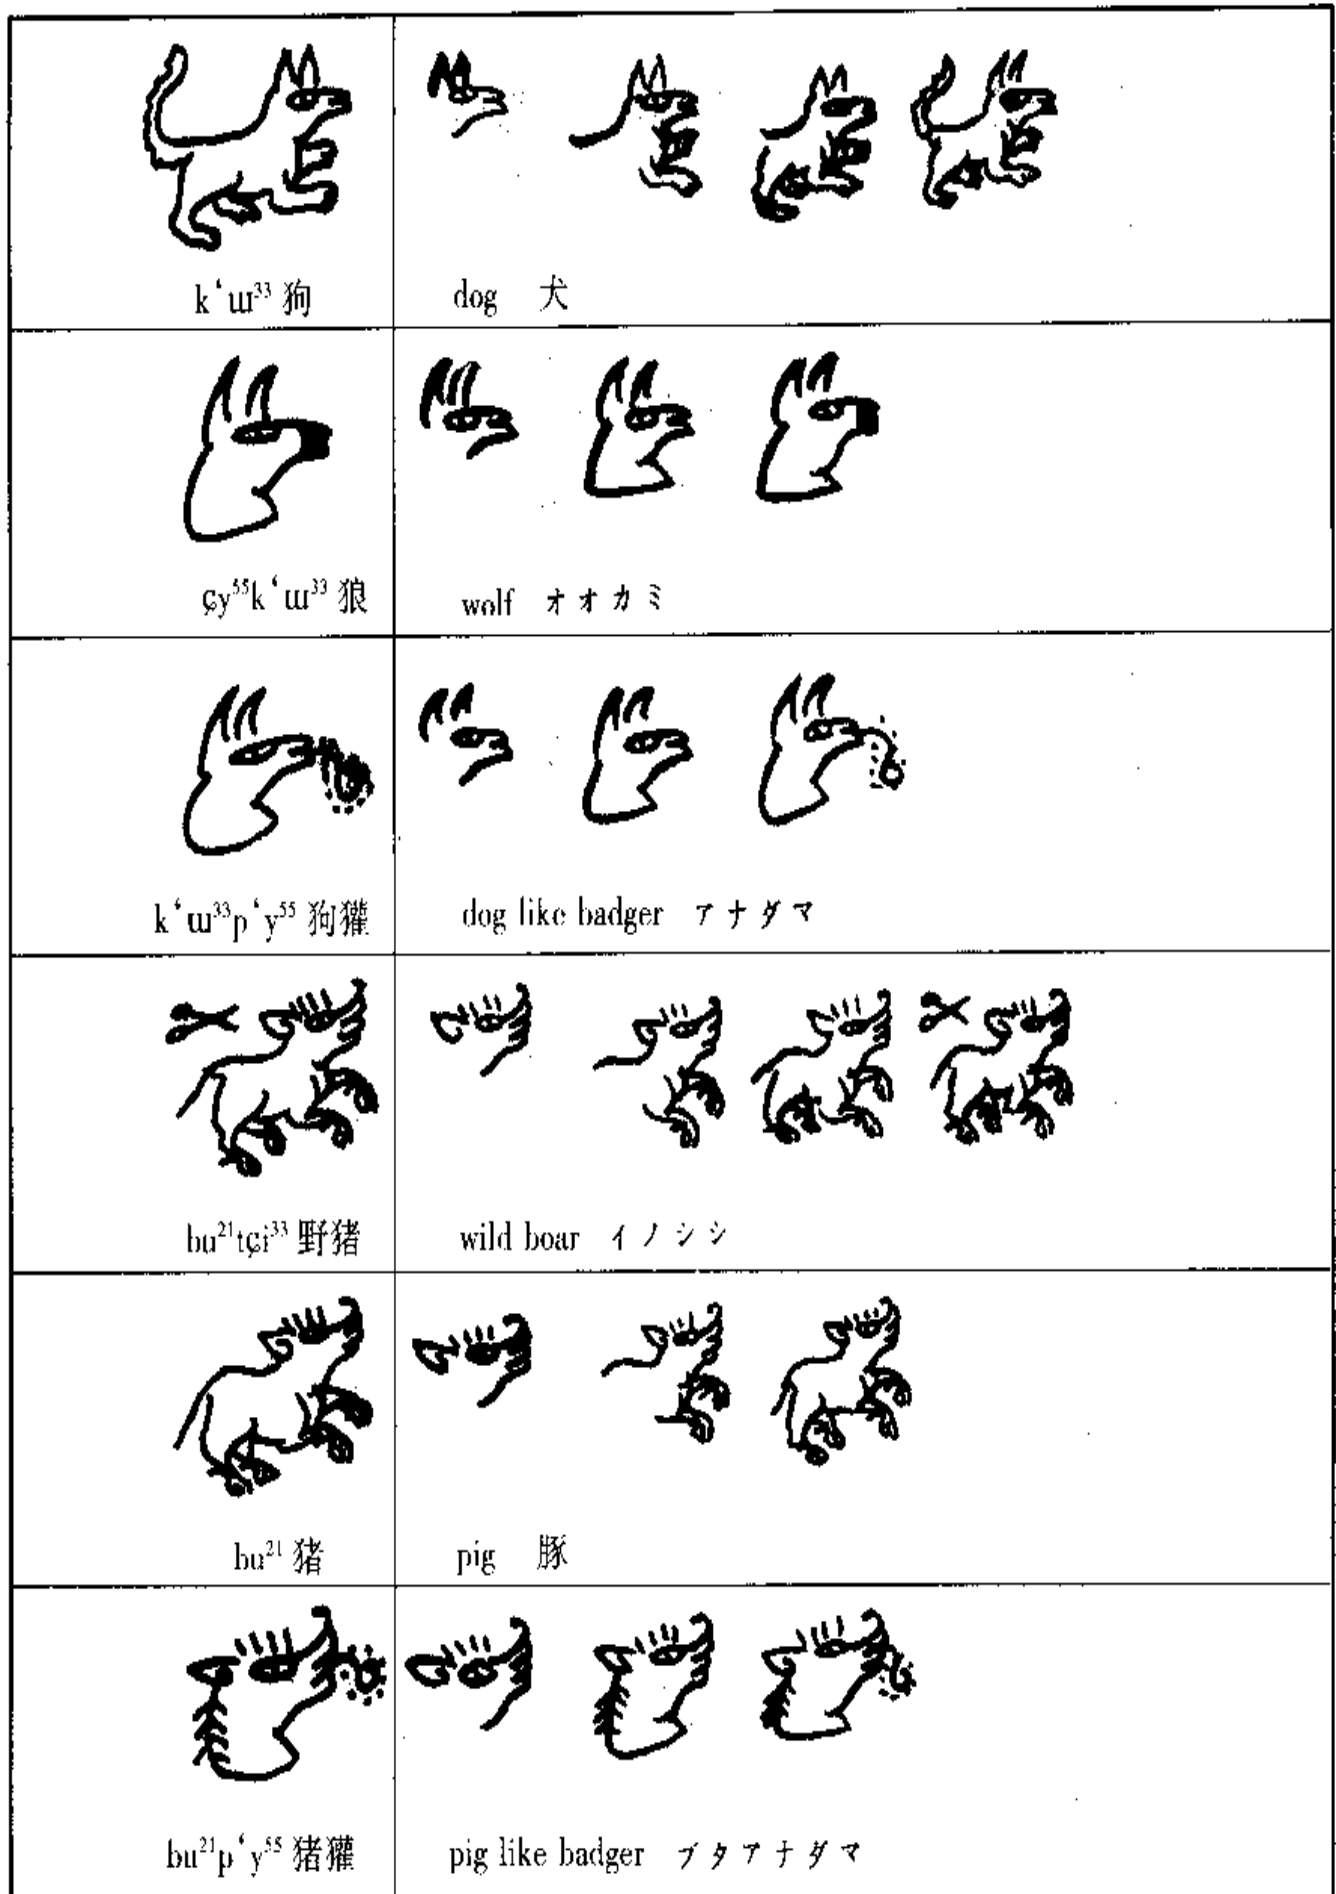 kʻɯ³³ 狗 dog 犬
ɕy⁵⁵kʻɯ³³ 狼 wolf オオカミ
kʻɯ³³pʻy⁵⁵ 狗獾 dog like badger アナダマ
bu²¹tɕi³³ 野猪 wild boar イノシシ
bu²¹ 猪 pig 豚
bu²¹pʻy⁵⁵ 猪獾 pig like badger ブタアナダマ